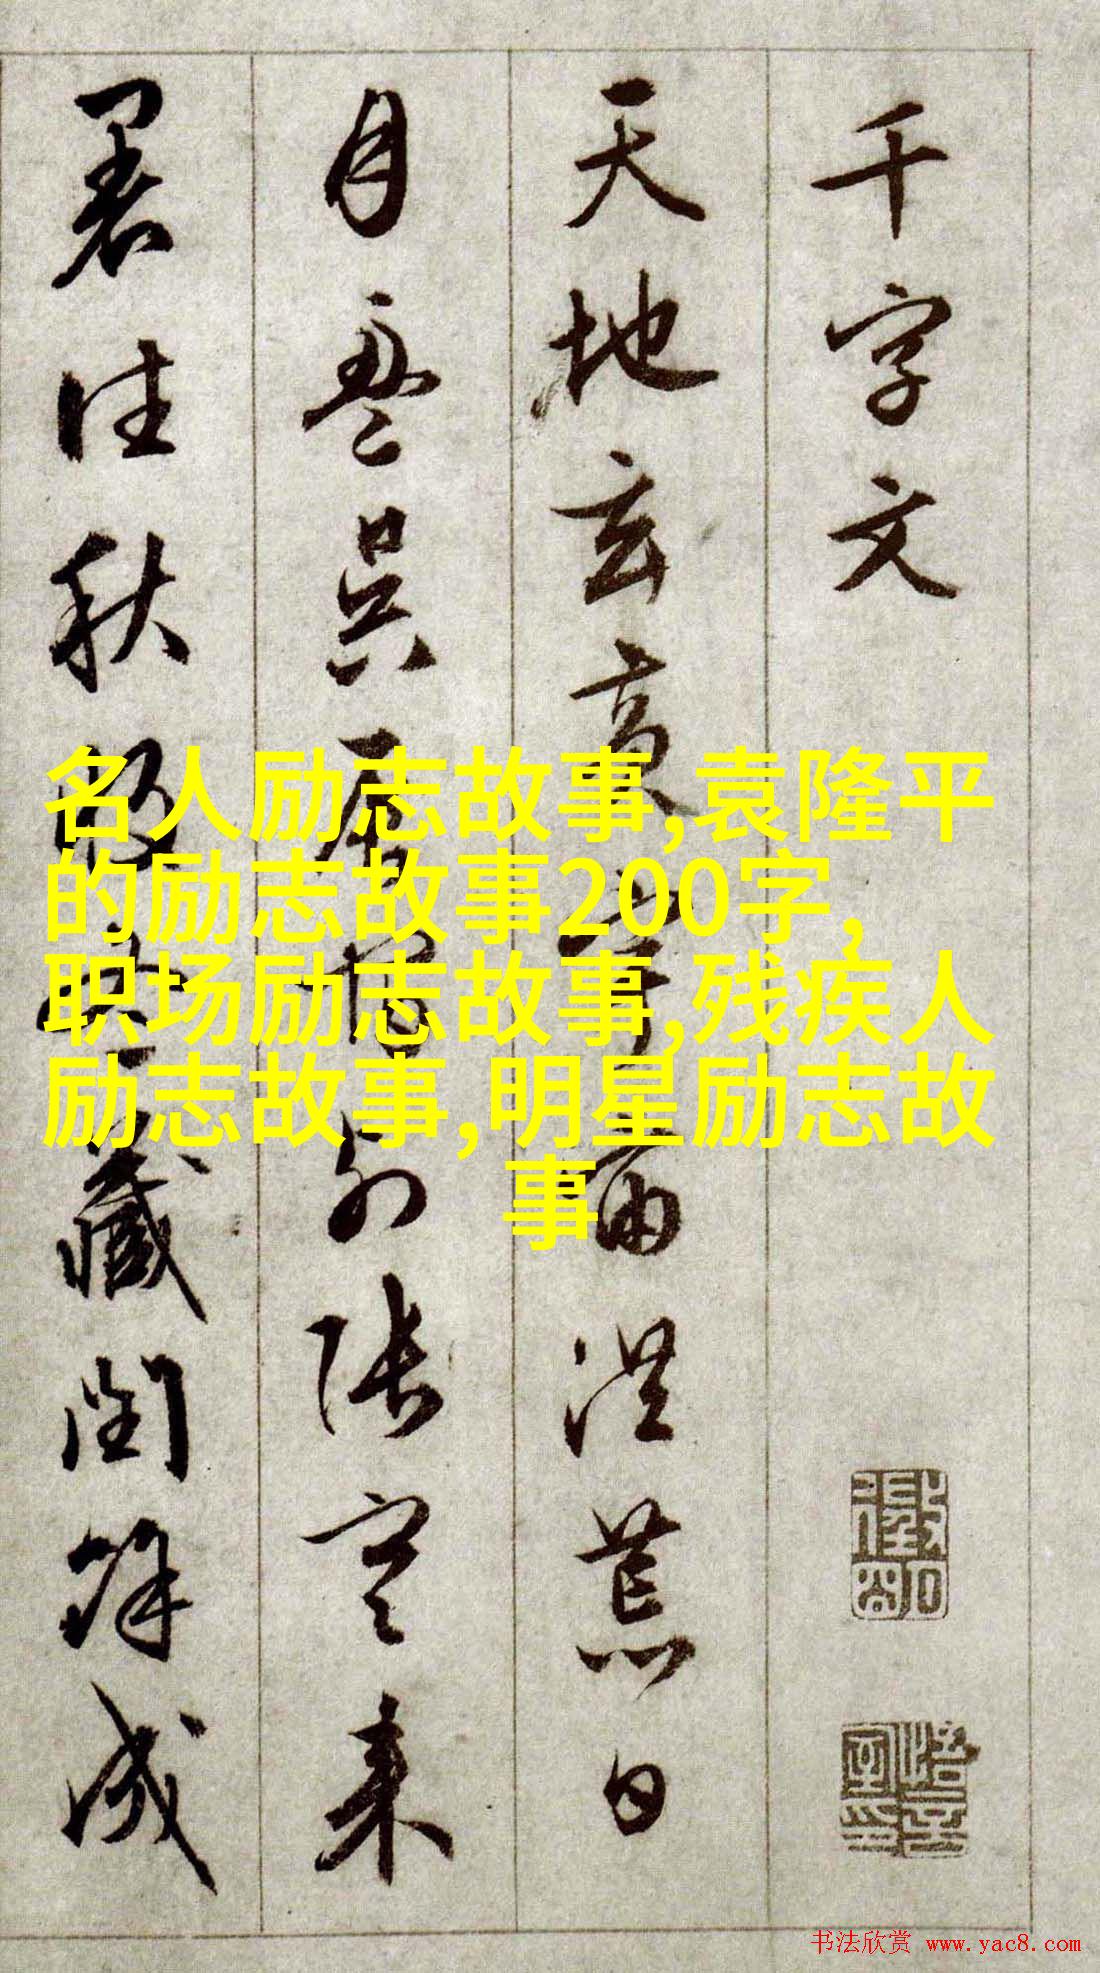 千字文
天地玄黄宇宙洪荒日
月盈昃辰宿列张寒来
暑往秋收冬藏闰馀成
名人励志故事,袁隆平
的励志故事200字,
职场励志故事,残疾人
励志故事,明星励志故
事
书法欣赏 www.yac8.com